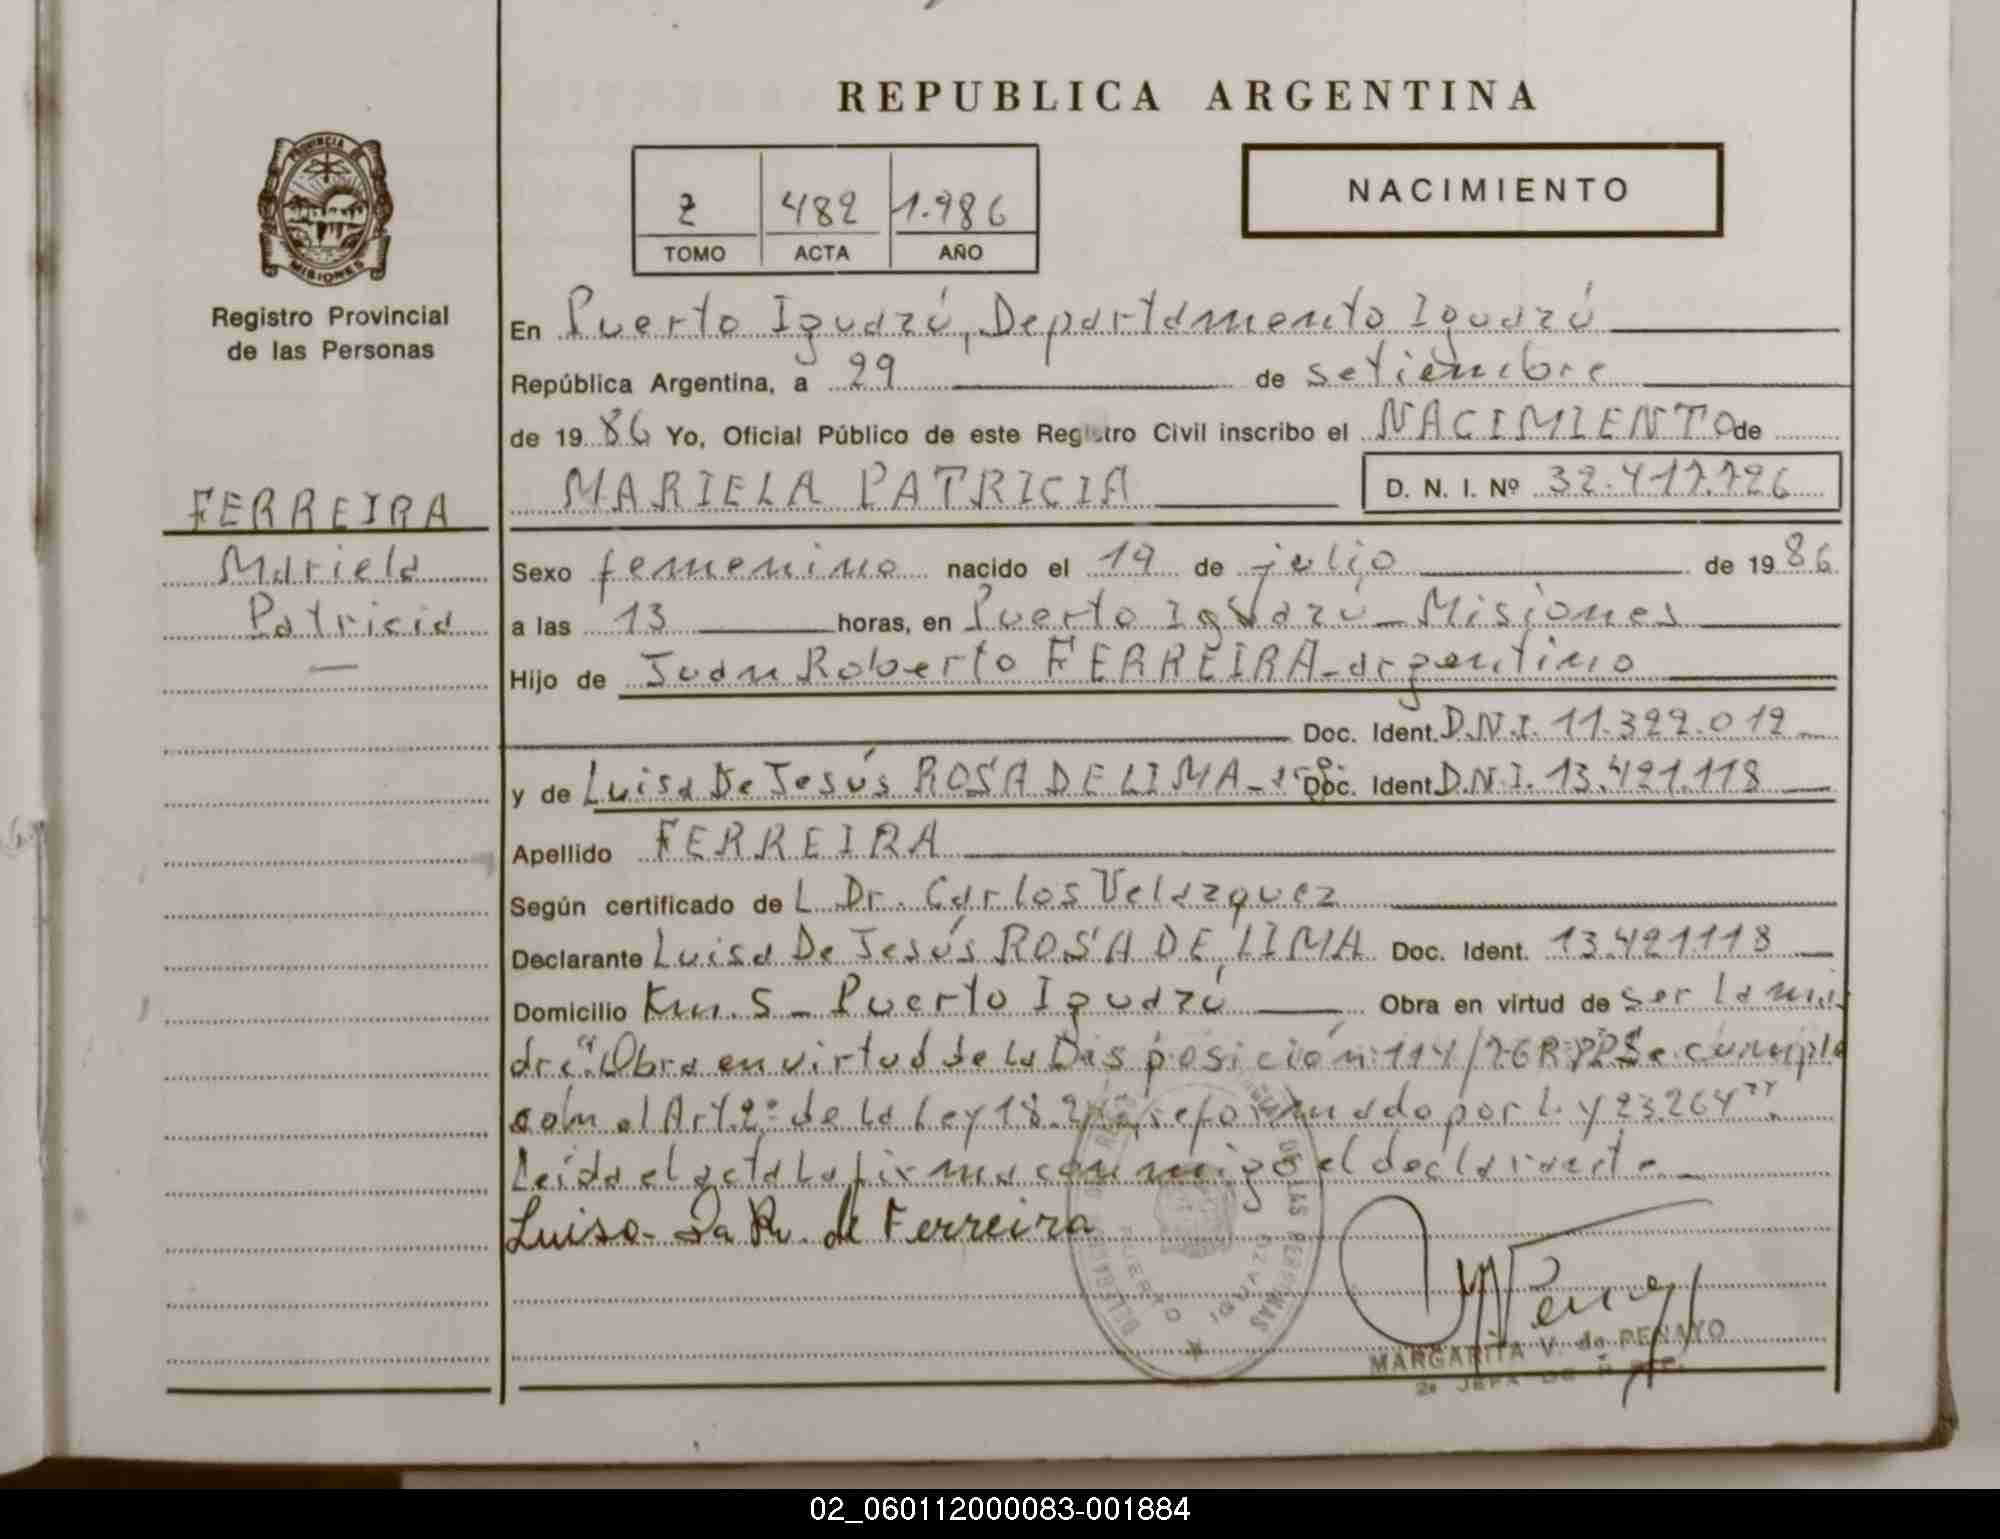 REPUBLICA ARGENTINA
PROVINCIA DE
MISIONES
2 482 1.986
TOMO ACTA AÑO
NACIMIENTO
Registro Provincial
de las Personas
En Puerto Iguazú, Departamento Iguazú
República Argentina, a 29 de setiembre
de 19 86 Yo, Oficial Público de este Registro Civil inscribo el NACIMIENTO de
MARIELA PATRICIA D. N. I. Nº
FERREIRA
Mariela
Patricia
Sexo femenino nacido el 19 de julio de 19 86
a las 13 horas, en Puerto Iguazú - Misiones
Hijo de Juan Roberto FERREIRA - argentino
Doc. Ident. D.N.I. 11.322.012
y de Luisa De Jesús ROSA DE LIMA - Doc. Ident D.N.I. 13.421.118
Apellido FERREIRA
Según certificado de L Dr. Carlos Velazquez
Declarante Luisa De Jesús ROSA DE LIMA Doc. Ident. 13.421118
Domicilio Km. 5 - Puerto Iguazú Obra en virtud de ser la ma
dre" Obra en virtud de la Disposición: RPP Se cumple
con el Art. 2º de la Ley reformado por L.y 23.264"
Leída el acta la firma conmigo el declarante -
Luisa de Ferreira
DE LAS PERSONAS
PUERTO IGUAZU
MARGARITA V. de PENAYO
2ª JEFA DE
02_060112000083-001884